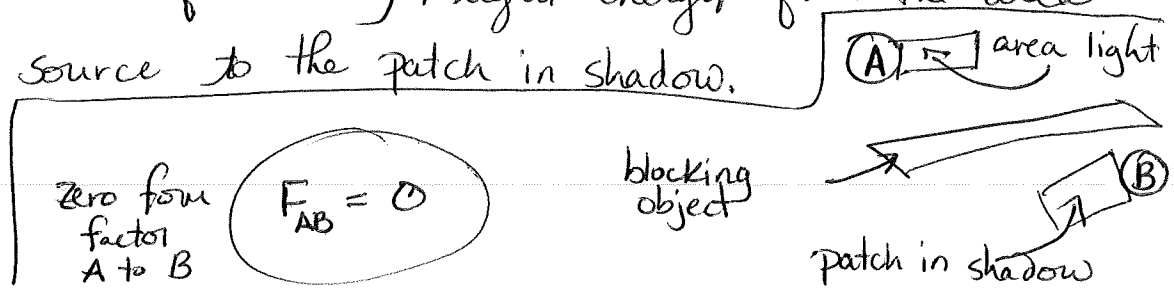 source to the patch in shadow.
A area light
zero form
factor
A to B
F_AB = 0
blocking
object
B
patch in shadow